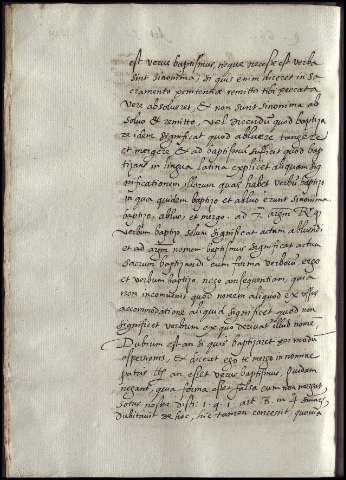 est verus baptismus, neque necesse est verba
sint sinonima, si quis enim diceret in sa
cramento penitentiæ remitto tibi peccata
vere absolueret, et non sunt sinonima ab
soluo et remitto, vel dicendum quod baptiza
re idem significat quod abluere tingere
et mergere et ad baptismum sufficit quod bap
tizans in lingua latina explicet aliquam sig
nificationem illarum quas habet verbum baptizo
in qua quidem baptizo et abluo erunt sinonima
baptizo, abluo et mergo. ad 7. argm R. q
verbum baptizo solum significat actum abluendi
et ad argm nomen baptismus significat actum
sacrum baptizandi cum forma verborum ergo
et verbum baptizo, nego consequentiam, quia
non incomuenit quod nomen aliquod ex usus
accommodatione aliquid significet quod non
significet verbum ex quo derivatur illud nomen
Dubium est an si quis baptizaret per modum
aspersionis, et diceret ego te mergo in nomine
patris etc an esset verus baptismus, quidam
negant, quia forma esset falsa cum non mergat,
sotus noster disti. 1. q. 1. art. 8. in 4
dubitavit de hoc, hic tamen concessit, quoniam